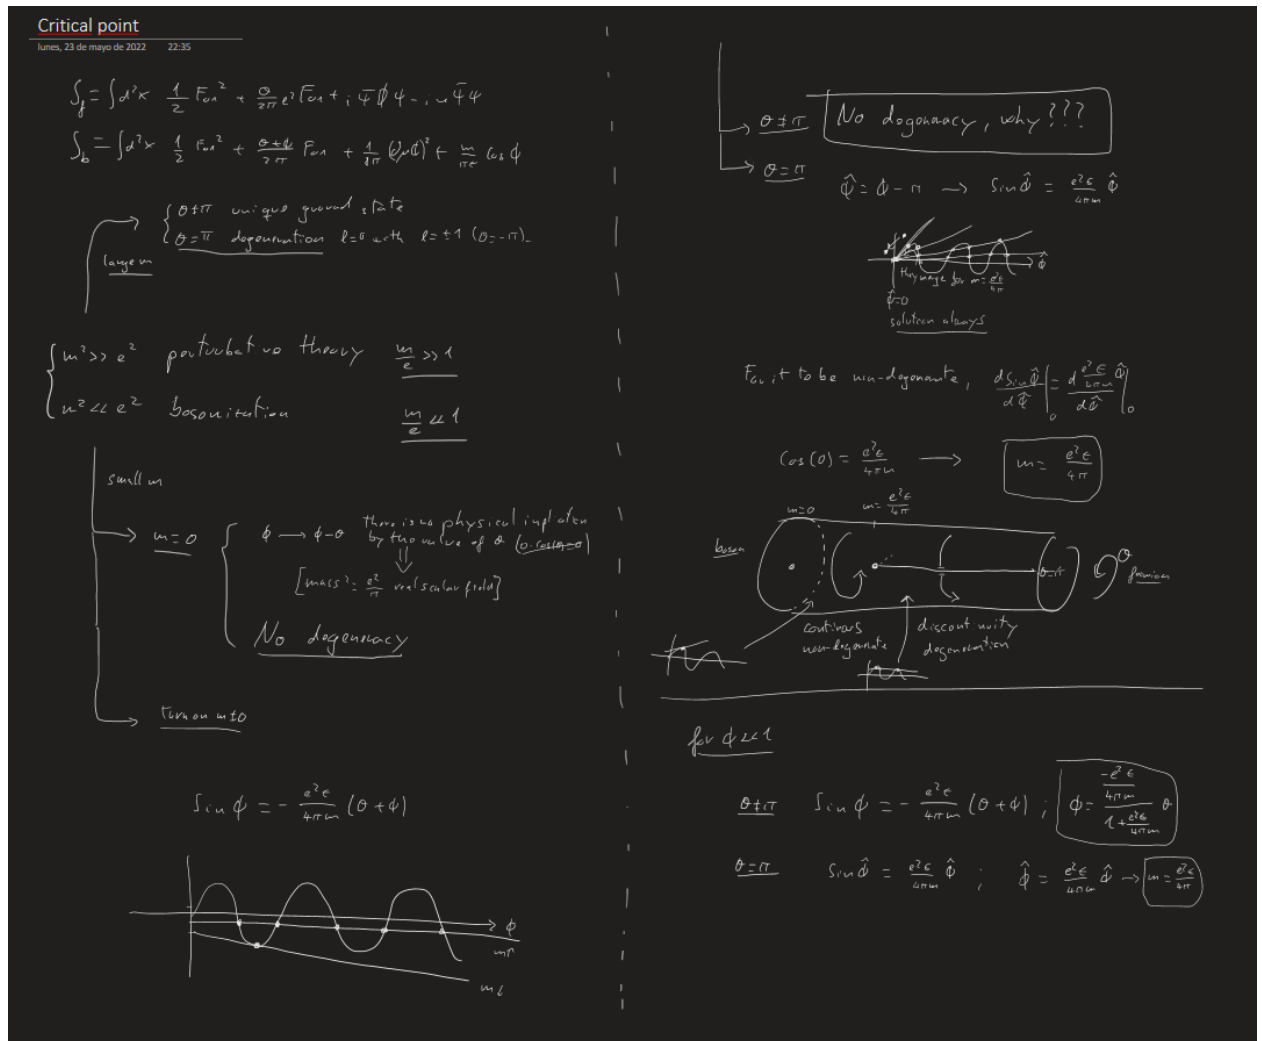 Critical point
lunes, 23 de mayo de 2022 22:35
S_f = ∫d²x 1/2 F₀₁² + θ/2π e² F₀₁ + i ψ̄ D̸ ψ - i m ψ̄ ψ
S_b = ∫d²x 1/2 F₀₁² + (θ+ϕ)/2π F₀₁ + 1/8π (∂μϕ)² + m/πε cos ϕ
θ≠π unique ground state
θ=π degeneration l=0 with l=±1 (θ=-π)
large m
m² >> e² perturbative theory m/e >> 1
m² << e² bosonization m/e << 1
small m
m=0
ϕ → ϕ-θ there is no physical
by the value of θ
[mass² = e²/π real scalar field]
No degeneracy
turn on m≠0
Sin ϕ = - e²ε/4πm (θ+ϕ)
ϕ
m↑
m↓
θ≠π No degeneracy, why???
θ=π
ϕ̂ = ϕ - π → Sin ϕ̂ = e²ε/4πm ϕ̂
ϕ̂
for m = e²ε/4π
ϕ̂=0
solution always
For it to be non-degenerate, dSinϕ̂/dϕ̂ |₀ = d e²ε/4πm ϕ̂/dϕ̂ |₀
Cos(0) = e²ε/4πm → m = e²ε/4π
m=0 m = e²ε/4π
boson θ=π θ fermion
continuous discontinuity
non-degenerate degeneration
for ϕ << 1
θ≠π Sin ϕ = - e²ε/4πm (θ+ϕ) ; ϕ = (-e²ε/4πm)/(1+e²ε/4πm) θ
θ=π Sin ϕ̂ = e²ε/4πm ϕ̂ ; ϕ̂ = e²ε/4πm ϕ̂ → m = e²ε/4π